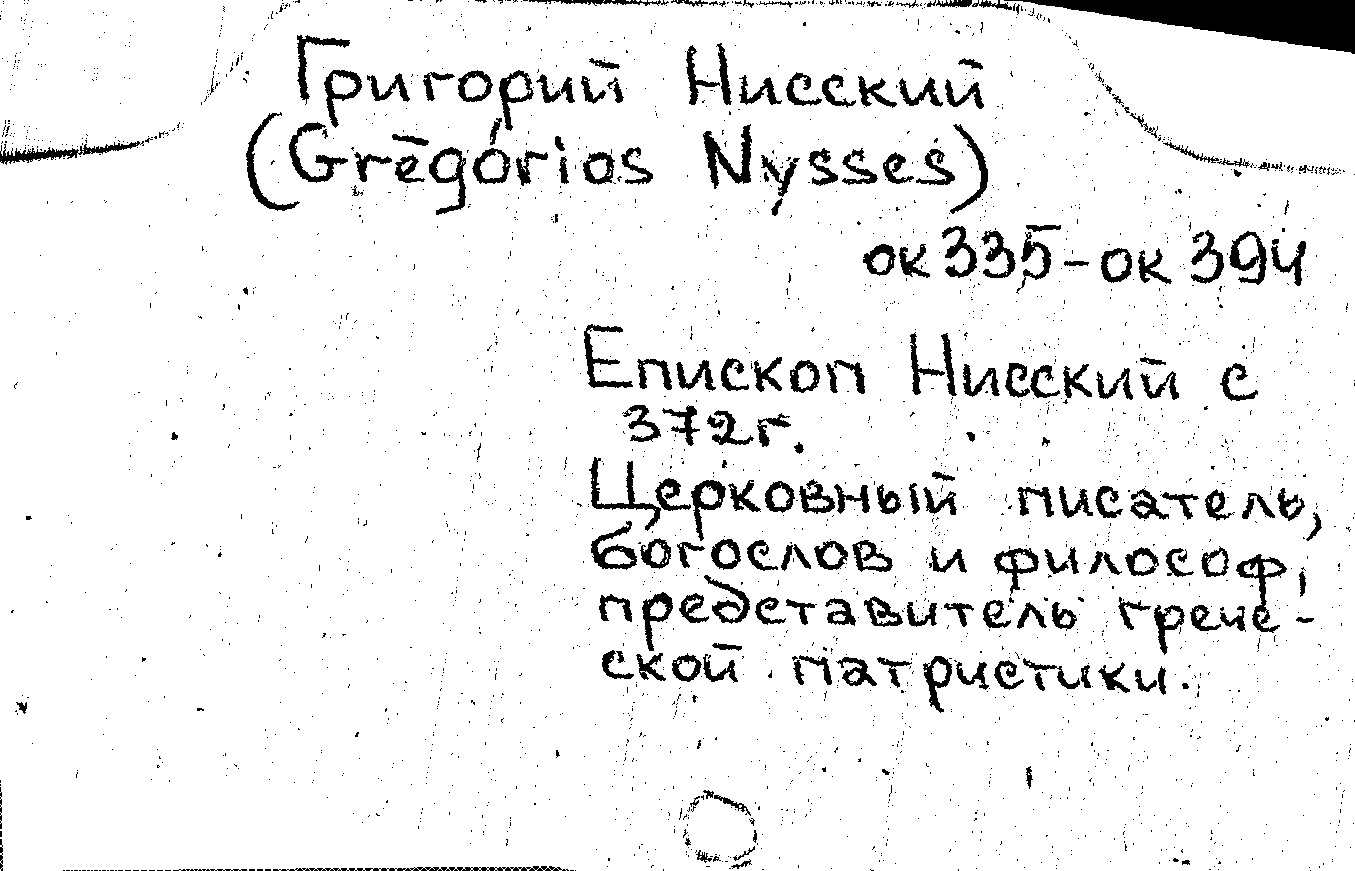 Григорий Нисский
(Grēgórios Nysses)
ок 335 - ок 394
Епископ Нисский с
372 г.
Церковный писатель,
богослов и философ,
представитель грече-
ской патристики.